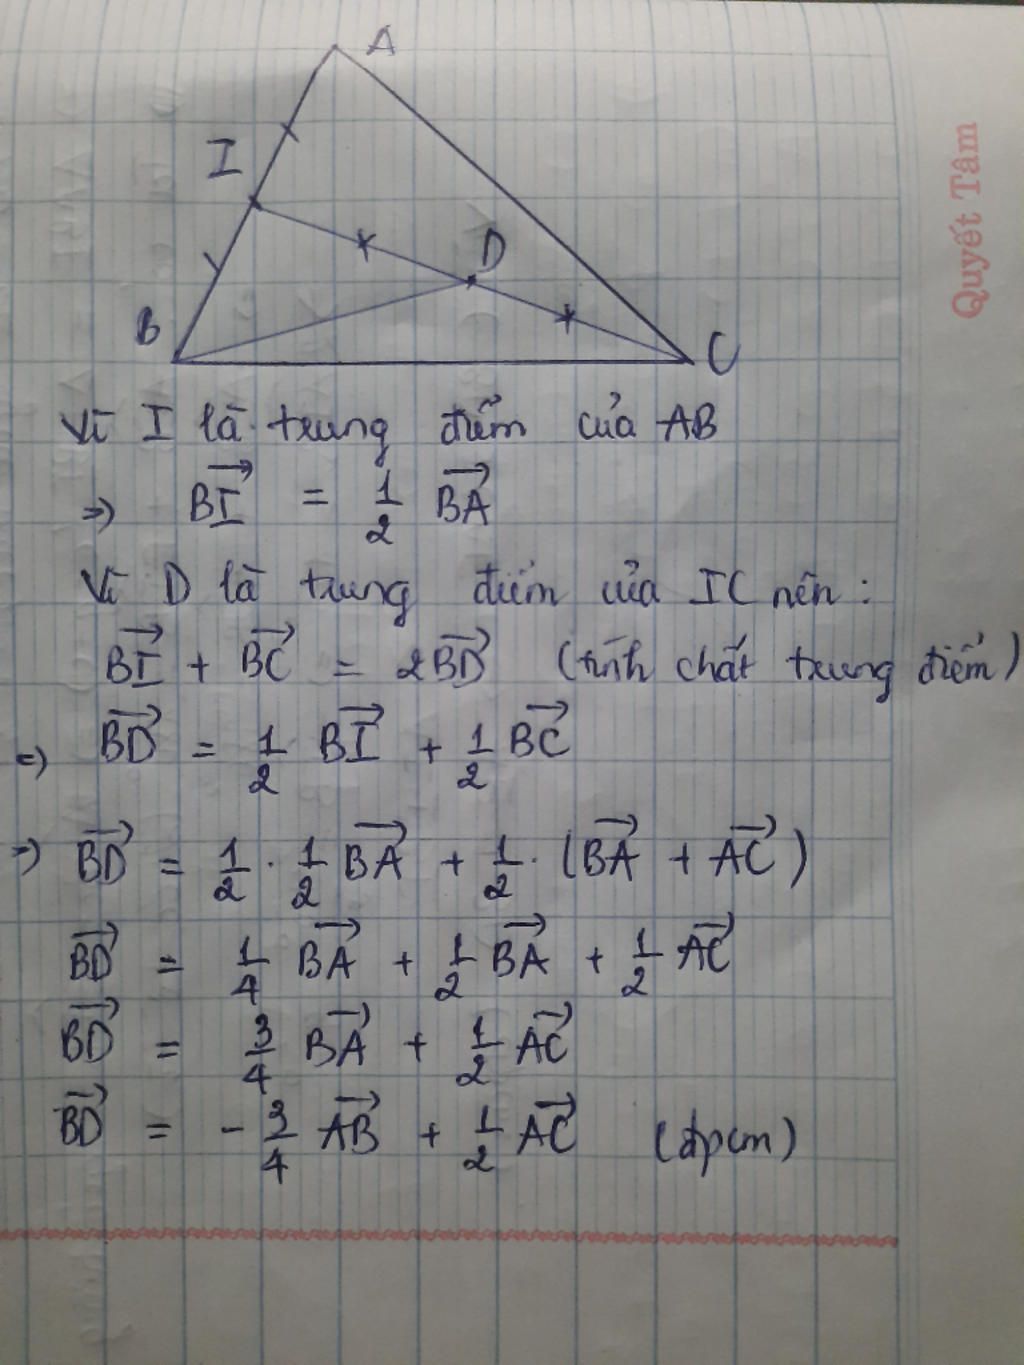 A
I
D
B
C
Quyết Tâm
Vì I là trung điểm của AB
⇒ $\overrightarrow{BI} = \frac{1}{2} \overrightarrow{BA}$
Vì D là trung điểm của IC nên :
$\overrightarrow{BI} + \overrightarrow{BC} = 2\overrightarrow{BD}$ (tính chất trung điểm)
⇒ $\overrightarrow{BD} = \frac{1}{2} \overrightarrow{BI} + \frac{1}{2} \overrightarrow{BC}$
⇒ $\overrightarrow{BD} = \frac{1}{2} \cdot \frac{1}{2} \overrightarrow{BA} + \frac{1}{2} \cdot (\overrightarrow{BA} + \overrightarrow{AC})$
$\overrightarrow{BD} = \frac{1}{4} \overrightarrow{BA} + \frac{1}{2} \overrightarrow{BA} + \frac{1}{2} \overrightarrow{AC}$
$\overrightarrow{BD} = \frac{3}{4} \overrightarrow{BA} + \frac{1}{2} \overrightarrow{AC}$
$\overrightarrow{BD} = -\frac{3}{4} \overrightarrow{AB} + \frac{1}{2} \overrightarrow{AC}$ (đpcm)